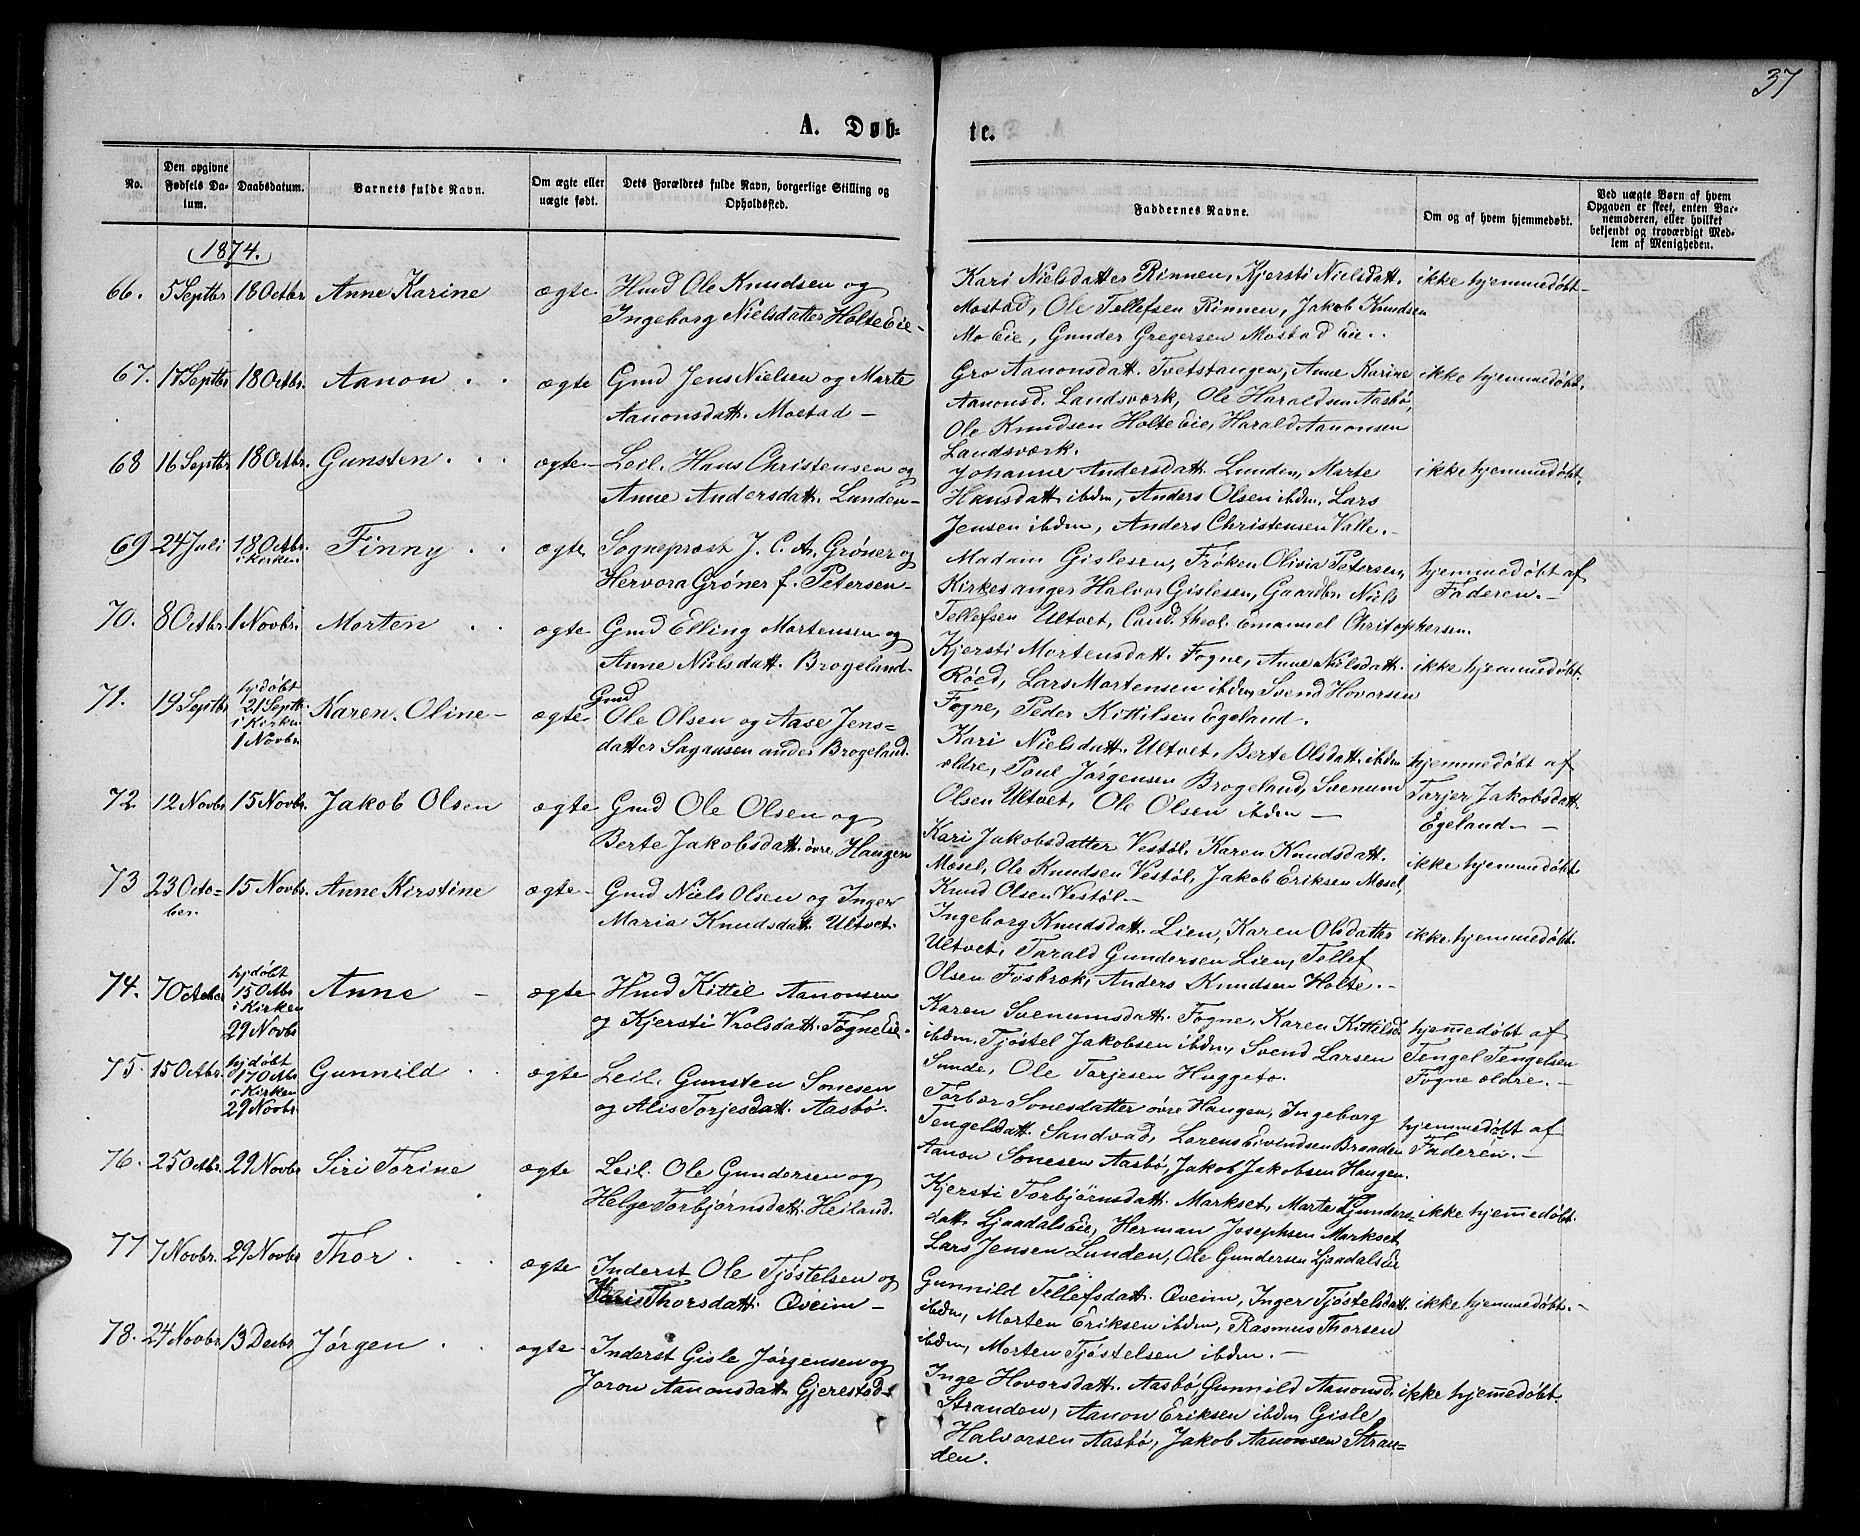 37
A. Døb-
te.
No.
Den opgivne Fødsels Datum.
Daabsdatum.
Barnets fulde Navn.
Om ægte eller uægte født.
Dets Forældres fulde Navn, borgerlige Stilling og Opholdssted.
Faddernes Navne.
Om og af hvem hjemmedøbt.
Ved uægte Børn af hvem Opgaven er skeet, enten Barnemoderen, eller hvilket bekjendt og troværdigt Medlem af Menigheden.
1874.
66. 5 Septbr 18 Octbr Anne Karine ægte Hmd Ole Knudsen og
Ingeborg Nielsdatter Holte Eie-
Kari Nielsdatter Rinnen, Kjersti Nielsdatt. ikke hjemmedøbt-
Mostad, Ole Tellefsen Rinnen, Jakob Knudsen
Mo Eie, Gunder Gregersen Mostad Eie.
67. 17 Septbr 18 Octbr. Aanon ægte Gmd Jens Nielsen og Marte
Aanonsdatt. Mostad-
Gro Aanonsdatt. Tvetstangen, Anne Karine ikke hjemmedøbt.
Aanonsd. Landsværk, Ole Haraldsen Aasbø,
Ole Knudsen Holte Eie, Harald Aanonsen
Landsværk.
68 16 Septbr 18 Octbr. Gunsten ægte- Leil. Hans Christensen og
Anne Andersdatt. Lunden-
Johanne Andersdatt. Lunden, Marte ikke hjemmedøbt.
Hansdatt ibdm, Anders Olsen ibdm, Lars
Jensen ibdm, Anders Christensen Valle.-
69 24 Juli 18 Octbr. i Kirken Finny ægte Sogneprest J. C. A. Grøner og
Hervora Grøner f. Petersen-
Madam Gislesen, Frøken Olivia Petersen, hjemmedøbt af
Kirkesanger Halvor Gislesen, Gaardbr. Niels Faderen.-
Tellefsen Ultvet, Cand. theol. Emanuel Christophersen.
70. 8 Octbr. 1 Novbr. Morten ægte Gmd Elling Mortensen og
Anne Nielsdatt. Brogeland-
Kjersti Mortensdatt. Fogne, Anne Nielsdatt. ikke hjemmedøbt
Røed, Lars Mortensen ibdm, Svend Hovorsen
Fogne, Peder Kittilsen Egeland.
71. 19 Septbr hjdøbt 21 Septb. i Kirken 1 Novbr. Karen Oline- ægte Gmd
Ole Olsen og Aase Jens-
datter Sagausen under Brogeland.
Kari Nielsdatt. Ultvet, Berte Olsdatt. ibdm hjemmedøbt af
ældre, Poul Jørgensen Brogeland, Svenum Tarjer Jakobsdatt.
Olsen Ultvet, Ole Olsen ibdm- Egeland.-
72. 12 Novbr. 15 Novbr. Jakob Olsen ægte Gmd Ole Olsen og
Berte Jakobsdatt. øvre Haugen
Kari Jakobsdatter Vestøl, Karen Knudsdatt. ikke hjemmedøbt.
Mosel, Ole Knudsen Vestøl, Jakob Eriksen Mosel,
Knud Olsen Vestøl-
73 23 October. 15 Novbr. Anne Kirstine ægte- Gmd Niels Olsen og Inger
Maria Knudsdatt. Ultvet.
Ingeborg Knudsdatt. Lien, Karen Olsdatter ikke hjemmedøbt.
Ultvet, Tarald Gundersen Lien, Tellef
Olsen Fosbræk, Anders Knudsen Holte.-
74. 7 October hjdøbt 15 Octbr i Kirken 29 Novbr Anne ægte Hmd Kittil Aanonsen
og Kjersti Vrolsdatt. Fogne Eie.
Karen Svenumsdatt. Fogne, Karen Kittilsd. hjemmedøbt af
ibdm, Tjøstel Jakobsen ibdm, Svend Larsen Tengel Tengelsen
Sunde, Ole Tarjesen Huggeto. Fogne ældre.-
75. 15 Octbr. hjdøbt 17 Octbr i Kirken 29 Novbr. Gunnild ægte Leil. Gunsten Sonesen
og Alis Torjesdatt. Aasbø.
Torbør Sonesdatter øvre Haugen, Ingeborg hjemmedøbt af
Tengelsdatt. Sandvad, Lorens Eivendsen Braaden Faderen.-
Aanon Sonesen Aasbø, Jakob Jakobsen Haugen.
76. 25 Octbr. 29 Novbr Siri Torine ægte Leil. Ole Gundersen og
Helge Torbjørnsdatt. Heiland.
Kjersti Torbjørnsdatt. Markset, Marte Gunders- ikke hjemmedøbt.
datt. Ljaadals Eie, Herman Josephsen Markset,
Lars Jensen Lunden, Ole Gundersen Ljaadals Eie
77 7 Novbr. 29 Novbr Thor ægte Inderst Ole Tjøstelsen og
Kari Thorsdatt. Qveim-
Gunnild Tellefsdatt. Qveim, Inger Tjøstelsdatt. ikke hjemmedøbt.-
ibdm, Morten Eriksen ibdm, Rasmus Thorsen
ibdm, Morten Tjøstelsen ibdm.-
78. 24 Novbr. 13 Decbr. Jørgen ægte Inderst Gisle Jørgensen og
Joron Aanonsdatt. Gjerestad-
Inge Hovorsdatt. Aasbø, Gunnild Aanonsd. ikke hjemmedøbt.
Stranden, Aanon Eriksen ibdm, Gisle
Halvorsen Aasbø, Jakob Aanonsen Stran-
den.